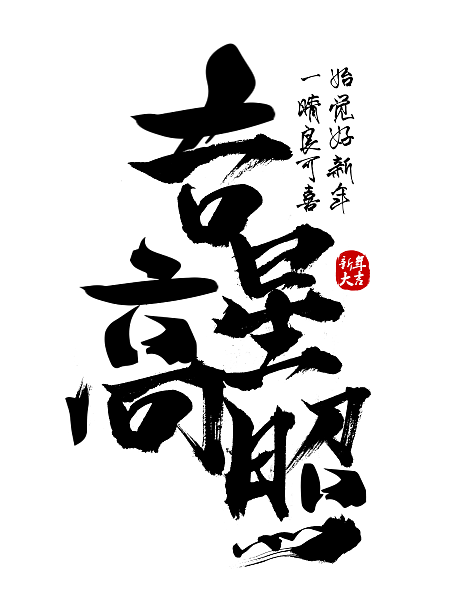 吉星高照
一晴良可喜
始觉好新年
新年
大吉